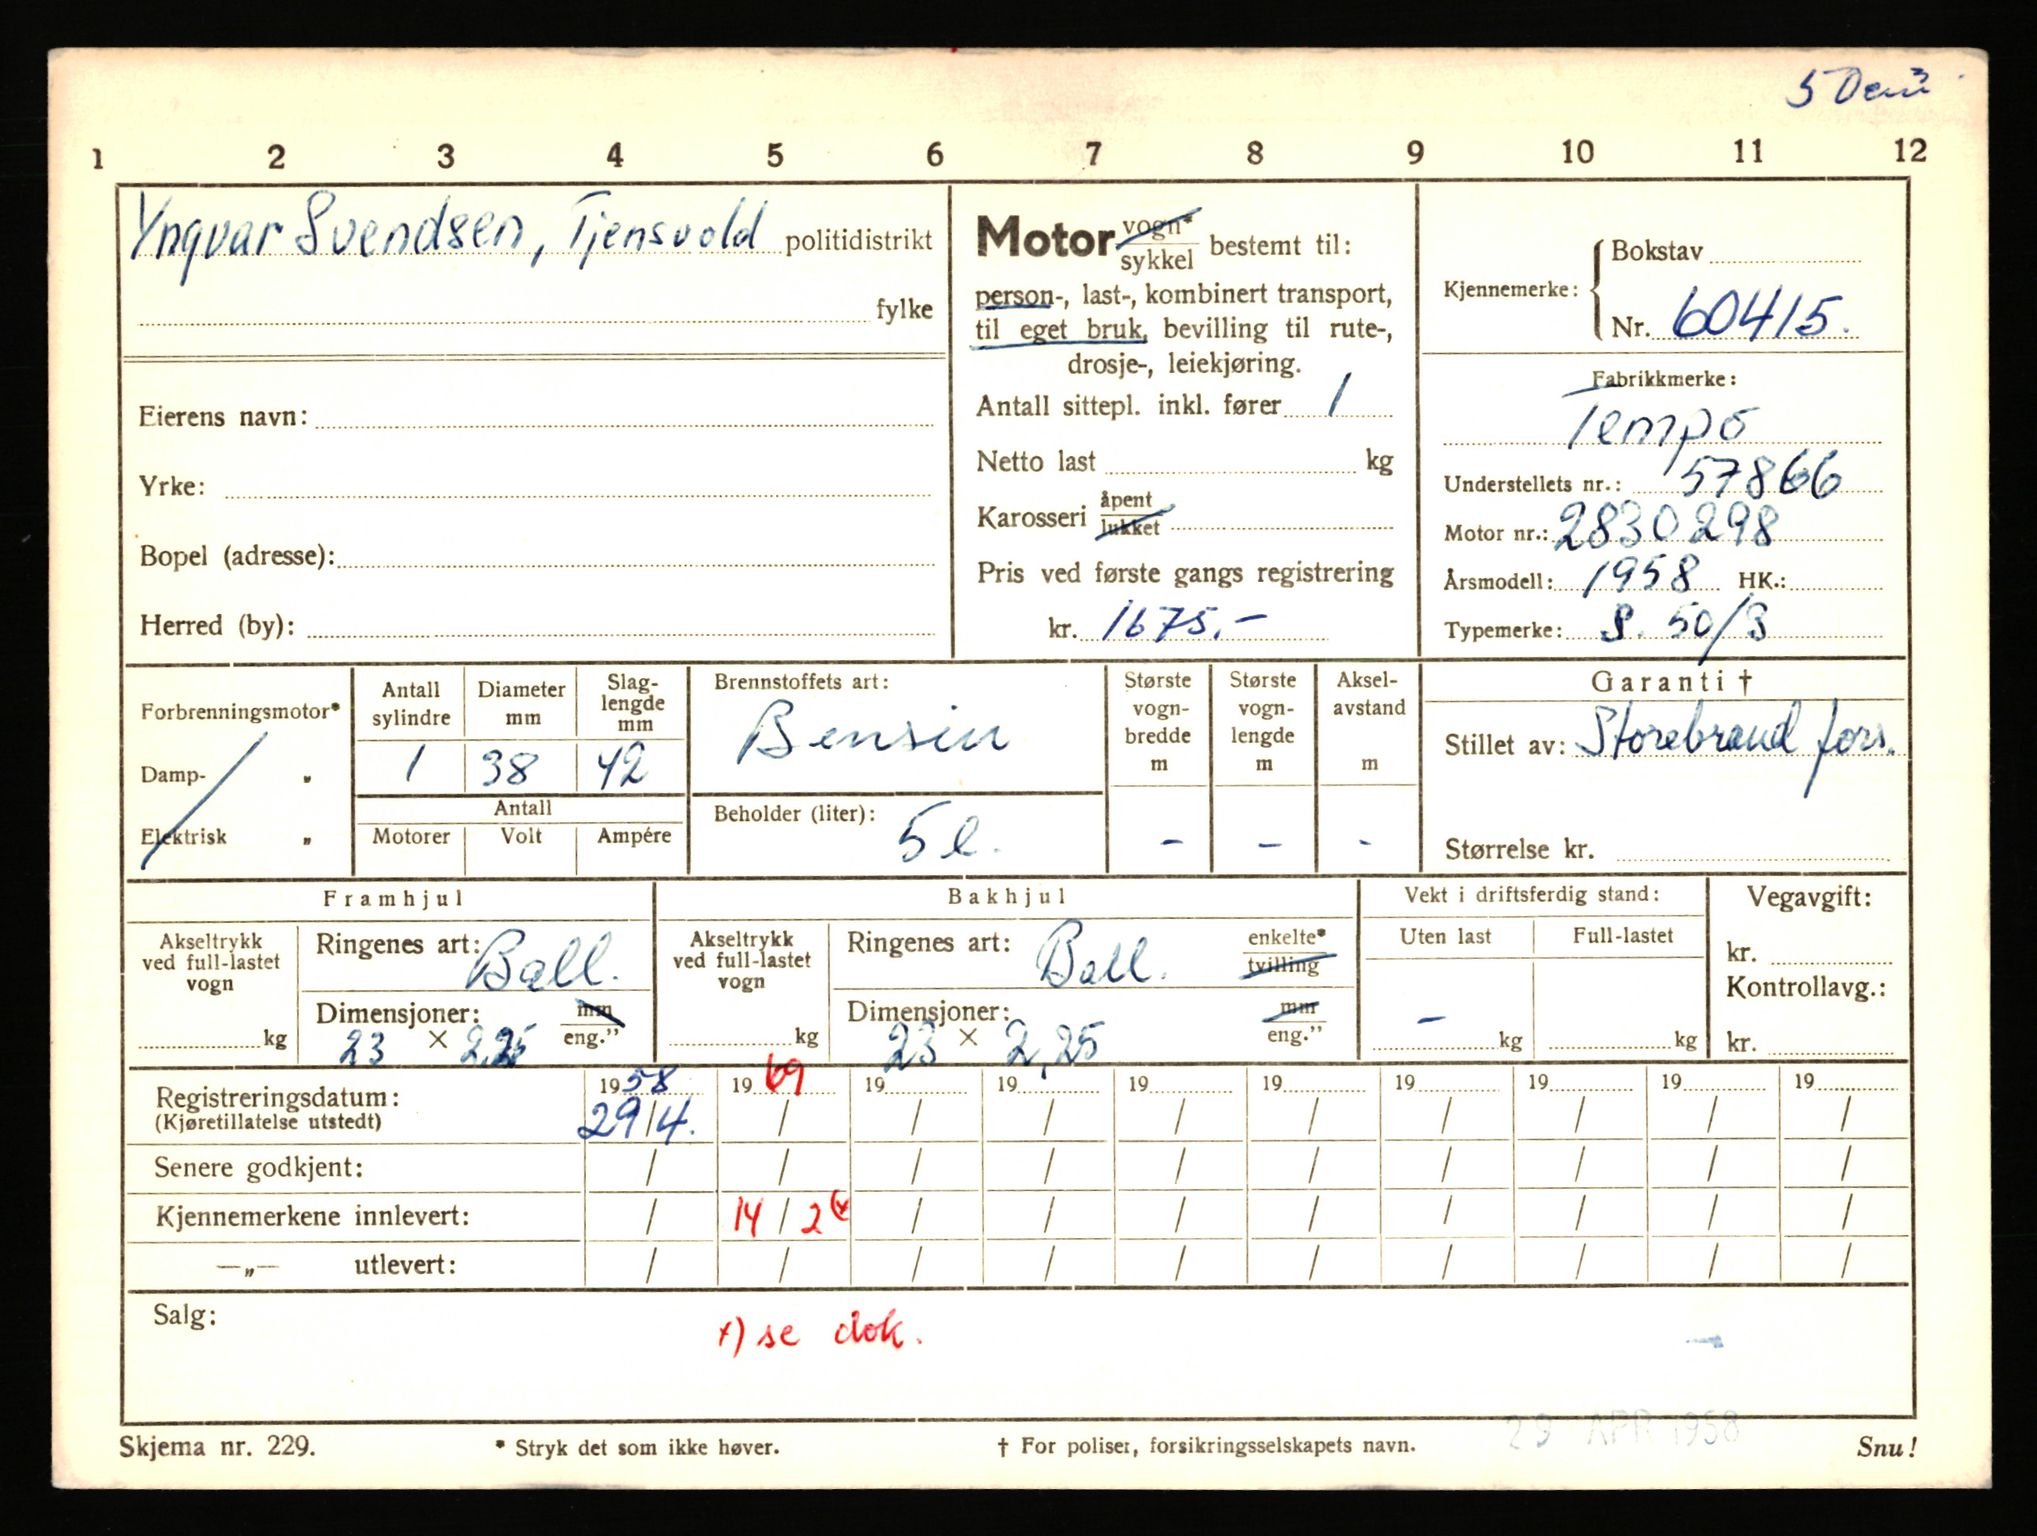 1 2 3 4 5 6 7 8 9 10 11 12
Yngvar Svendsen, Tjensvold politidistrikt
fylke
Eierens navn:
Yrke:
Bopel (adresse):
Herred (by):
Motor vogn* sykkel bestemt til:
person-, last-, kombinert transport,
til eget bruk, bevilling til rute-,
drosje-, leiekjøring.
Antall sittepl. inkl. fører 1
Netto last kg
Karosseri åpent lukket
Pris ved første gangs registrering
kr. 1675.-
Kjennemerke: Bokstav
Nr. 60415.
Fabrikkmerke:
Tempo
Understellets nr.: 57866
Motor nr.: 2830298
Årsmodell: 1958 HK.:
Typemerke: S. 50/3
Forbrenningsmotor*
Damp- „
Elektrisk „
Antall sylindre
1
Diameter mm
38
Slag-lengde mm
42
Antall
Motorer Volt Ampére
Brennstoffets art:
Bensin
Beholder (liter):
5 l.
Største vogn-bredde m
-
Største vogn-lengde m
-
Aksel-avstand m
-
Garanti †
Stillet av: Storebrand fors.
Størrelse kr.
Framhjul
Akseltrykk ved full-lastet vogn
kg
Ringenes art: Ball.
Dimensjoner: mm eng.”
23 × 2,25
Bakhjul
Akseltrykk ved full-lastet vogn
kg
Ringenes art: Ball. enkelte* tvilling
Dimensjoner: mm eng.”
23 × 2,25
Vekt i driftsferdig stand:
Uten last Full-lastet
- kg kg
Vegavgift:
kr.
Kontrollavg.:
kr.
Registreringsdatum: 1958 1969 19 19 19 19 19 19 19 19
(Kjøretillatelse utstedt) 29/4. / / / / / / / / /
Senere godkjent: / / / / / / / / / /
Kjennemerkene innlevert: / 14 / 2 x / / / / / / / /
—„— utlevert: / / / / / / / / / /
Salg:
x) se dok.
29 APR 1958
Skjema nr. 229. * Stryk det som ikke høver. † For poliser, forsikringsselskapets navn. Snu!